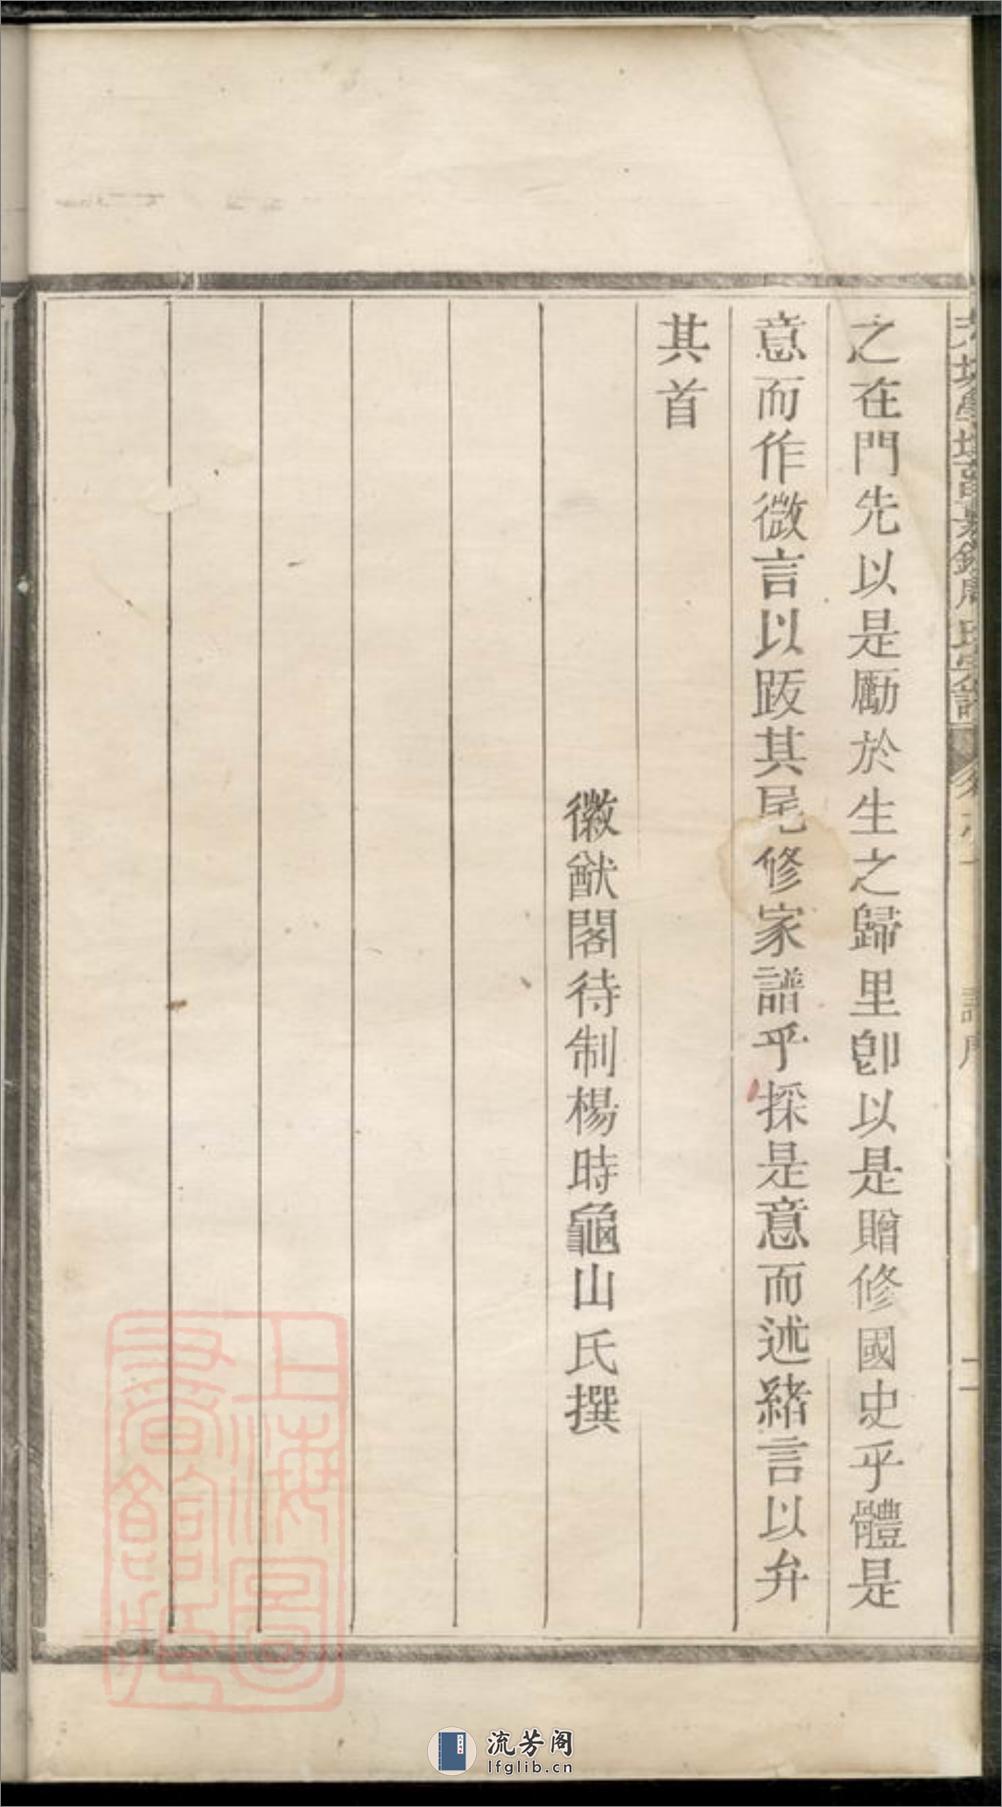 之在門先以是勵於生之歸里卽以是贈修國史乎體是
意而作微言以跋其尾修家譜乎採是意而述緒言以弁
其首
徽猷閣待制楊時龜山氏撰
上海圖書館藏
流芳阁
lfglib.cn